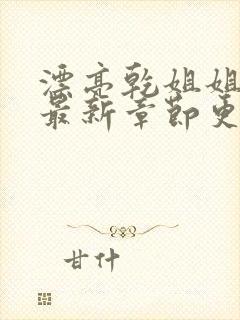 漂亮乾姐姐
最新章節更
甘什